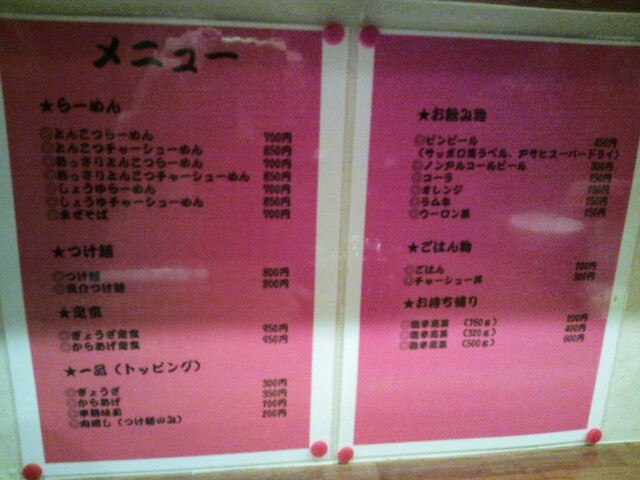 メニュー
★らーめん
◎とんこつらーめん 700円
◎とんこつチャーシューめん 850円
◎あっさりとんこつらーめん 700円
◎あっさりとんこつチャーシューめん 850円
◎しょうゆらーめん 700円
◎しょうゆチャーシューめん 850円
◎まぜそば 700円
★つけ麺
◎つけ麺 800円
◎魚介つけ麺 800円
★定食
◎ぎょうざ定食 950円
◎からあげ定食 950円
★一品(トッピング)
◎ぎょうざ 300円
◎からあげ 350円
◎半熟味玉 100円
◎肉増し(つけ麺のみ) 200円
★お飲み物
◎ビンビール 450円
(サッポロ黒ラベル、アサヒスーパードライ)
◎ノンアルコールビール 300円
◎コーラ 150円
◎オレンジ 150円
◎ラムネ 150円
◎ウーロン茶 150円
★ごはん物
◎ごはん 100円
◎チャーシュー丼 300円
★お持ち帰り
◎辛高菜 (160g) 200円
◎辛高菜 (320g) 400円
◎辛高菜 (500g) 600円